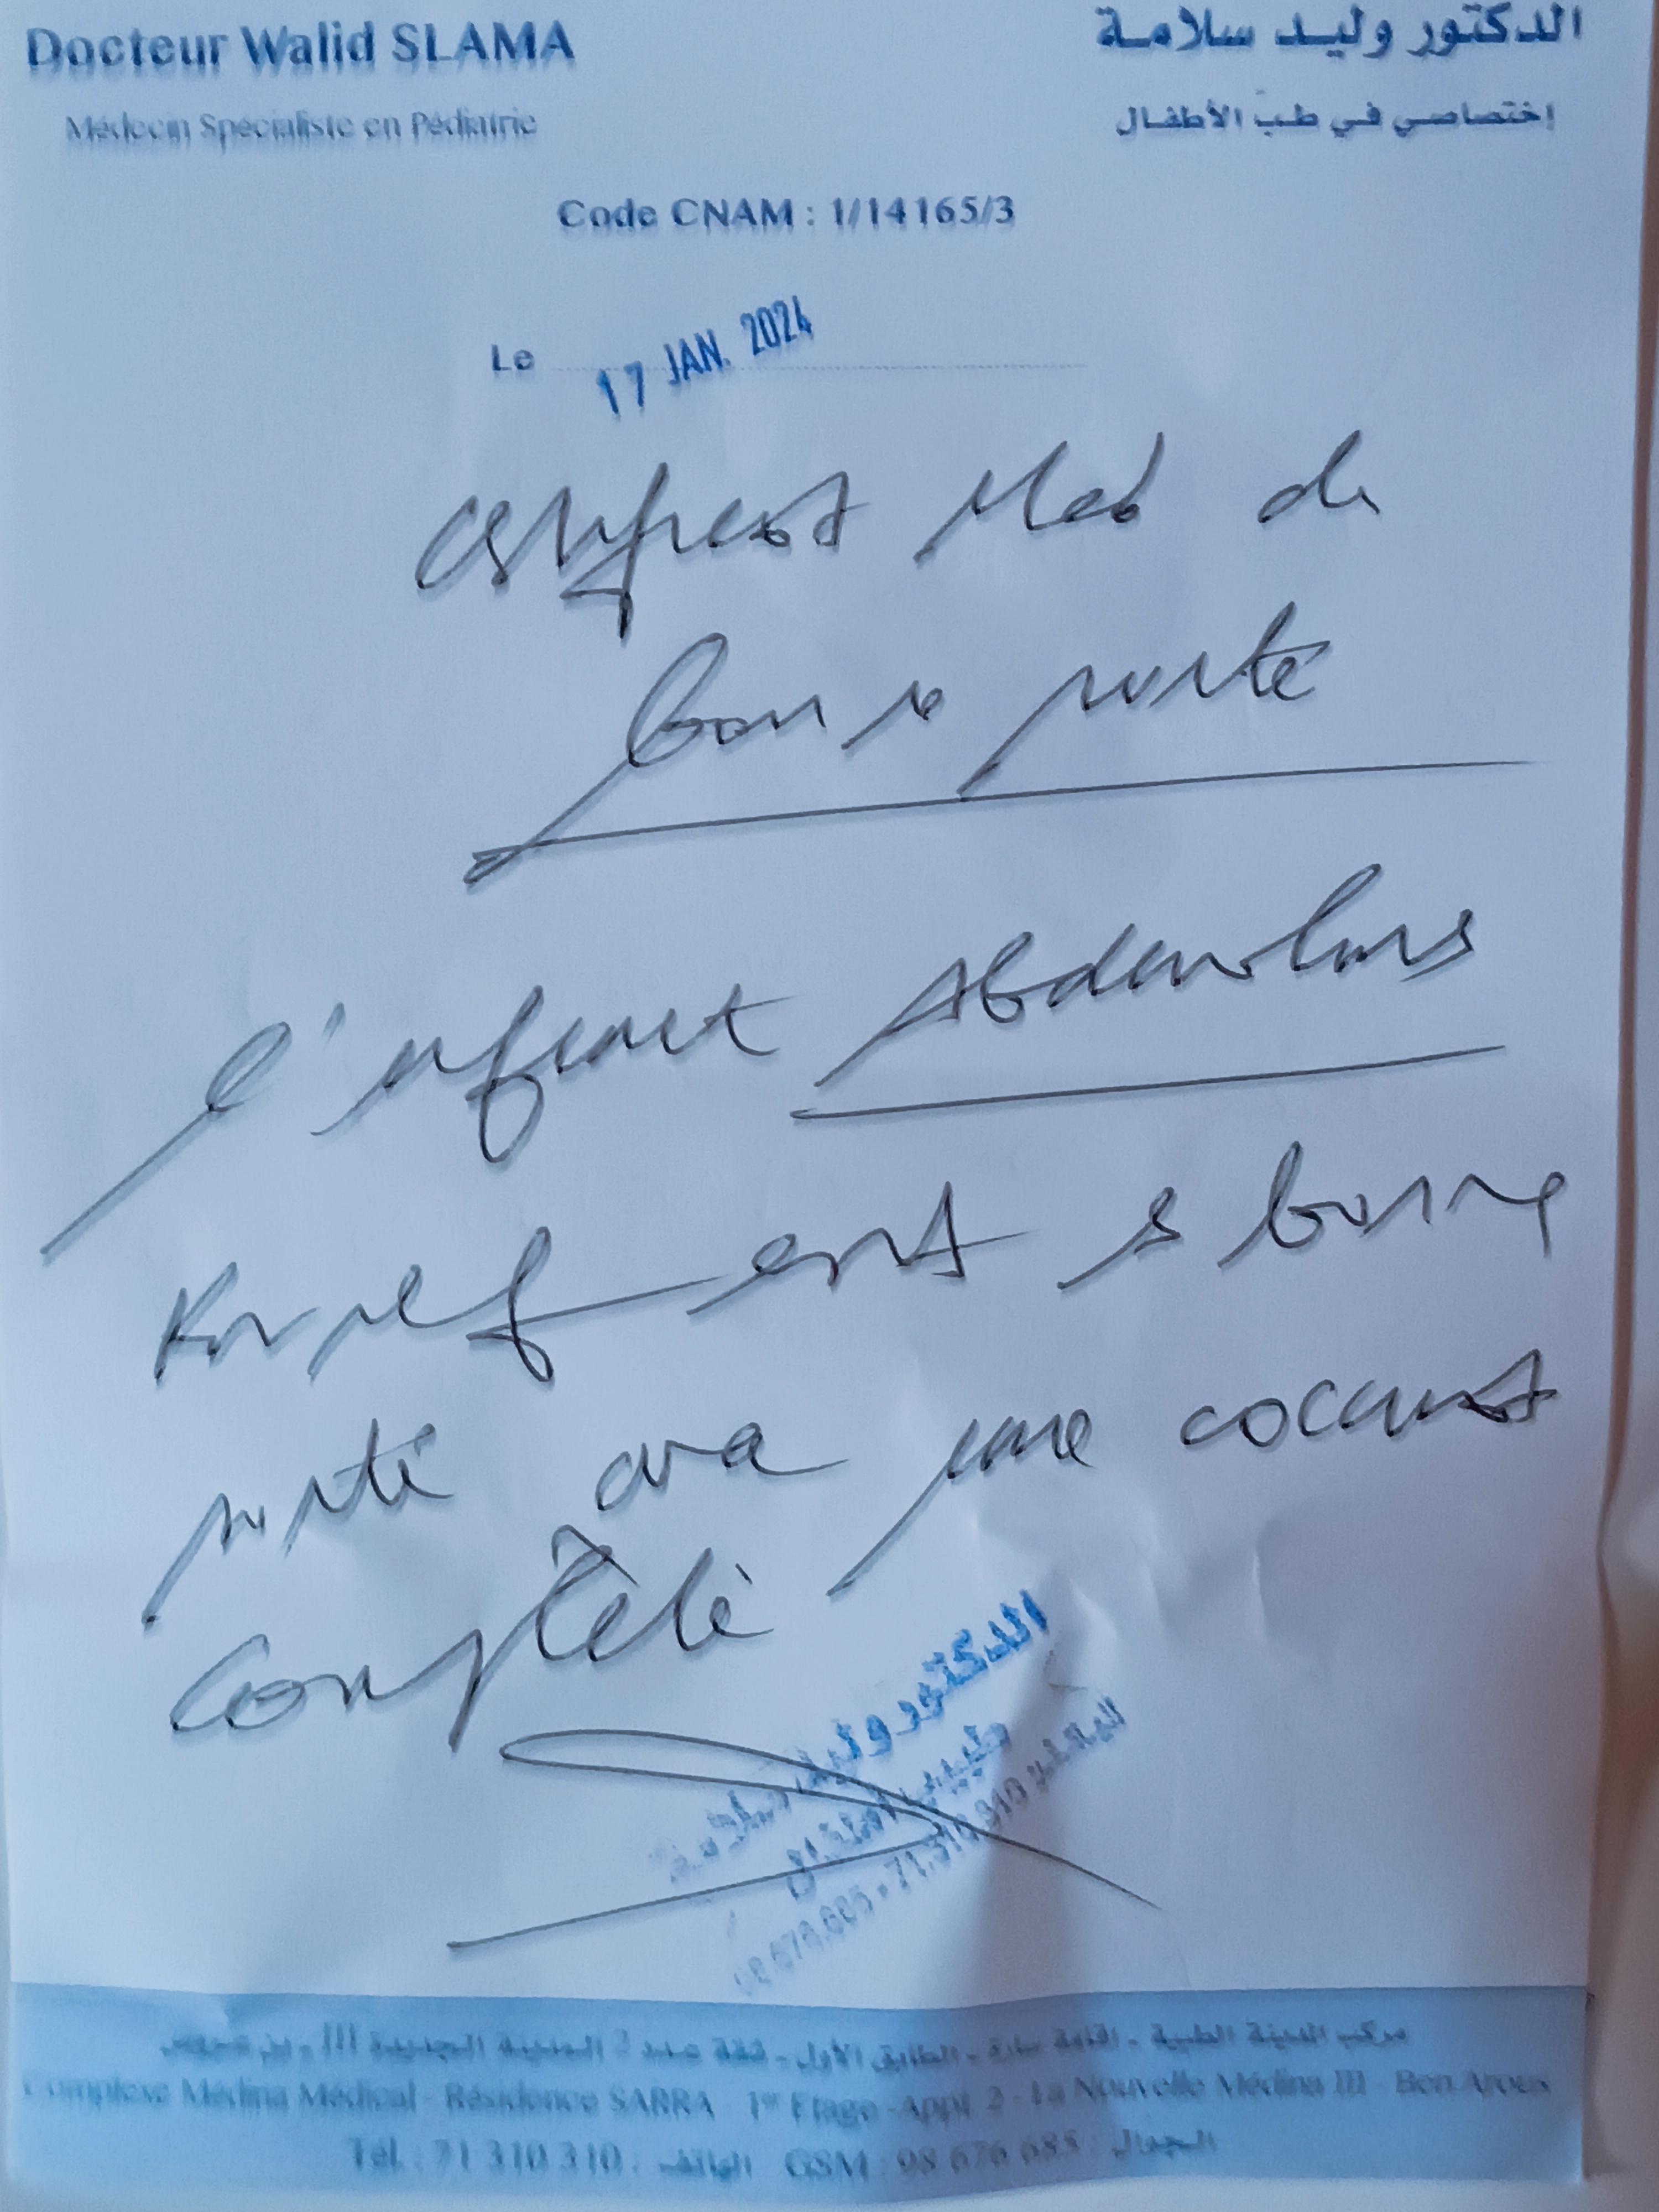 Docteur Walid SLAMA
الدكتور وليد سلامة
Médecin Spécialiste en Pédiatrie
إختصاصي في طب الأطفال
Code CNAM : 1/14165/3
Le 17 JAN. 2024
certificat Med de
bonne santé
l'enfant
est bonne
santé une
complète
الدكتور وليد سلامة
طبيب أطفال
98.676.685 - 71.310.310 الهاتف
مركب المدينة الطبية - اقامة سارة - الطابق الأول - شقة عدد 2 المدينة الجديدة III - بن عروس
Complexe Médina Médical - Résidence SARRA - 1er Etage - Appt 2 - La Nouvelle Médina III - Ben Arous
Tél. : 71 310 310 : الهاتف GSM : 98 676 685 : الجوال